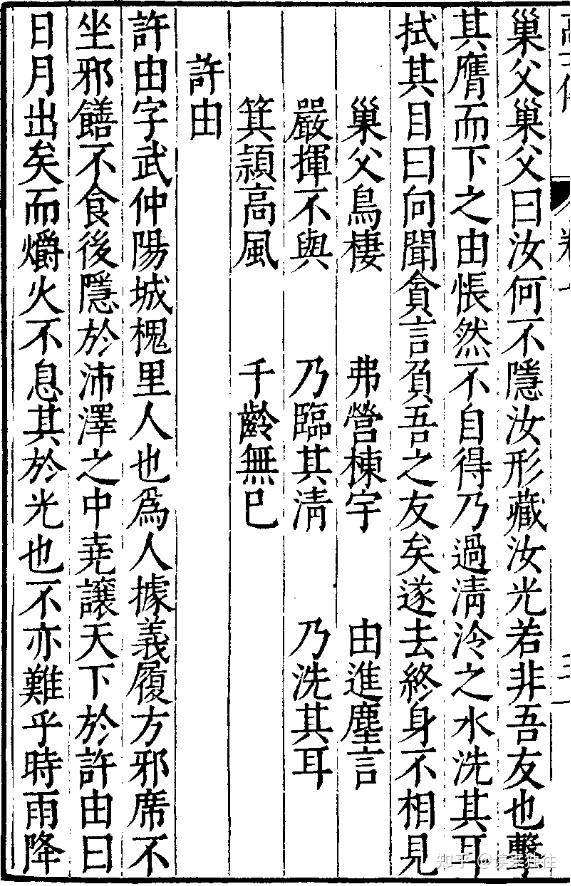 巢父巢父曰汝何不隱汝形藏汝光若非吾友也擊
其膺而下之由悵然不自得乃過清泠之水洗其耳
拭其目曰向聞貪言負吾之友矣遂去終身不相見
巢父鳥棲 弗營棟宇 由進塵言
嚴揮不與 乃臨其清 乃洗其耳
箕潁高風 千齡無已
許由
許由字武仲陽城槐里人也為人據義履方邪席不
坐邪饍不食後隱於沛澤之中堯讓天下於許由曰
日月出矣而爝火不息其於光也不亦難乎時雨降